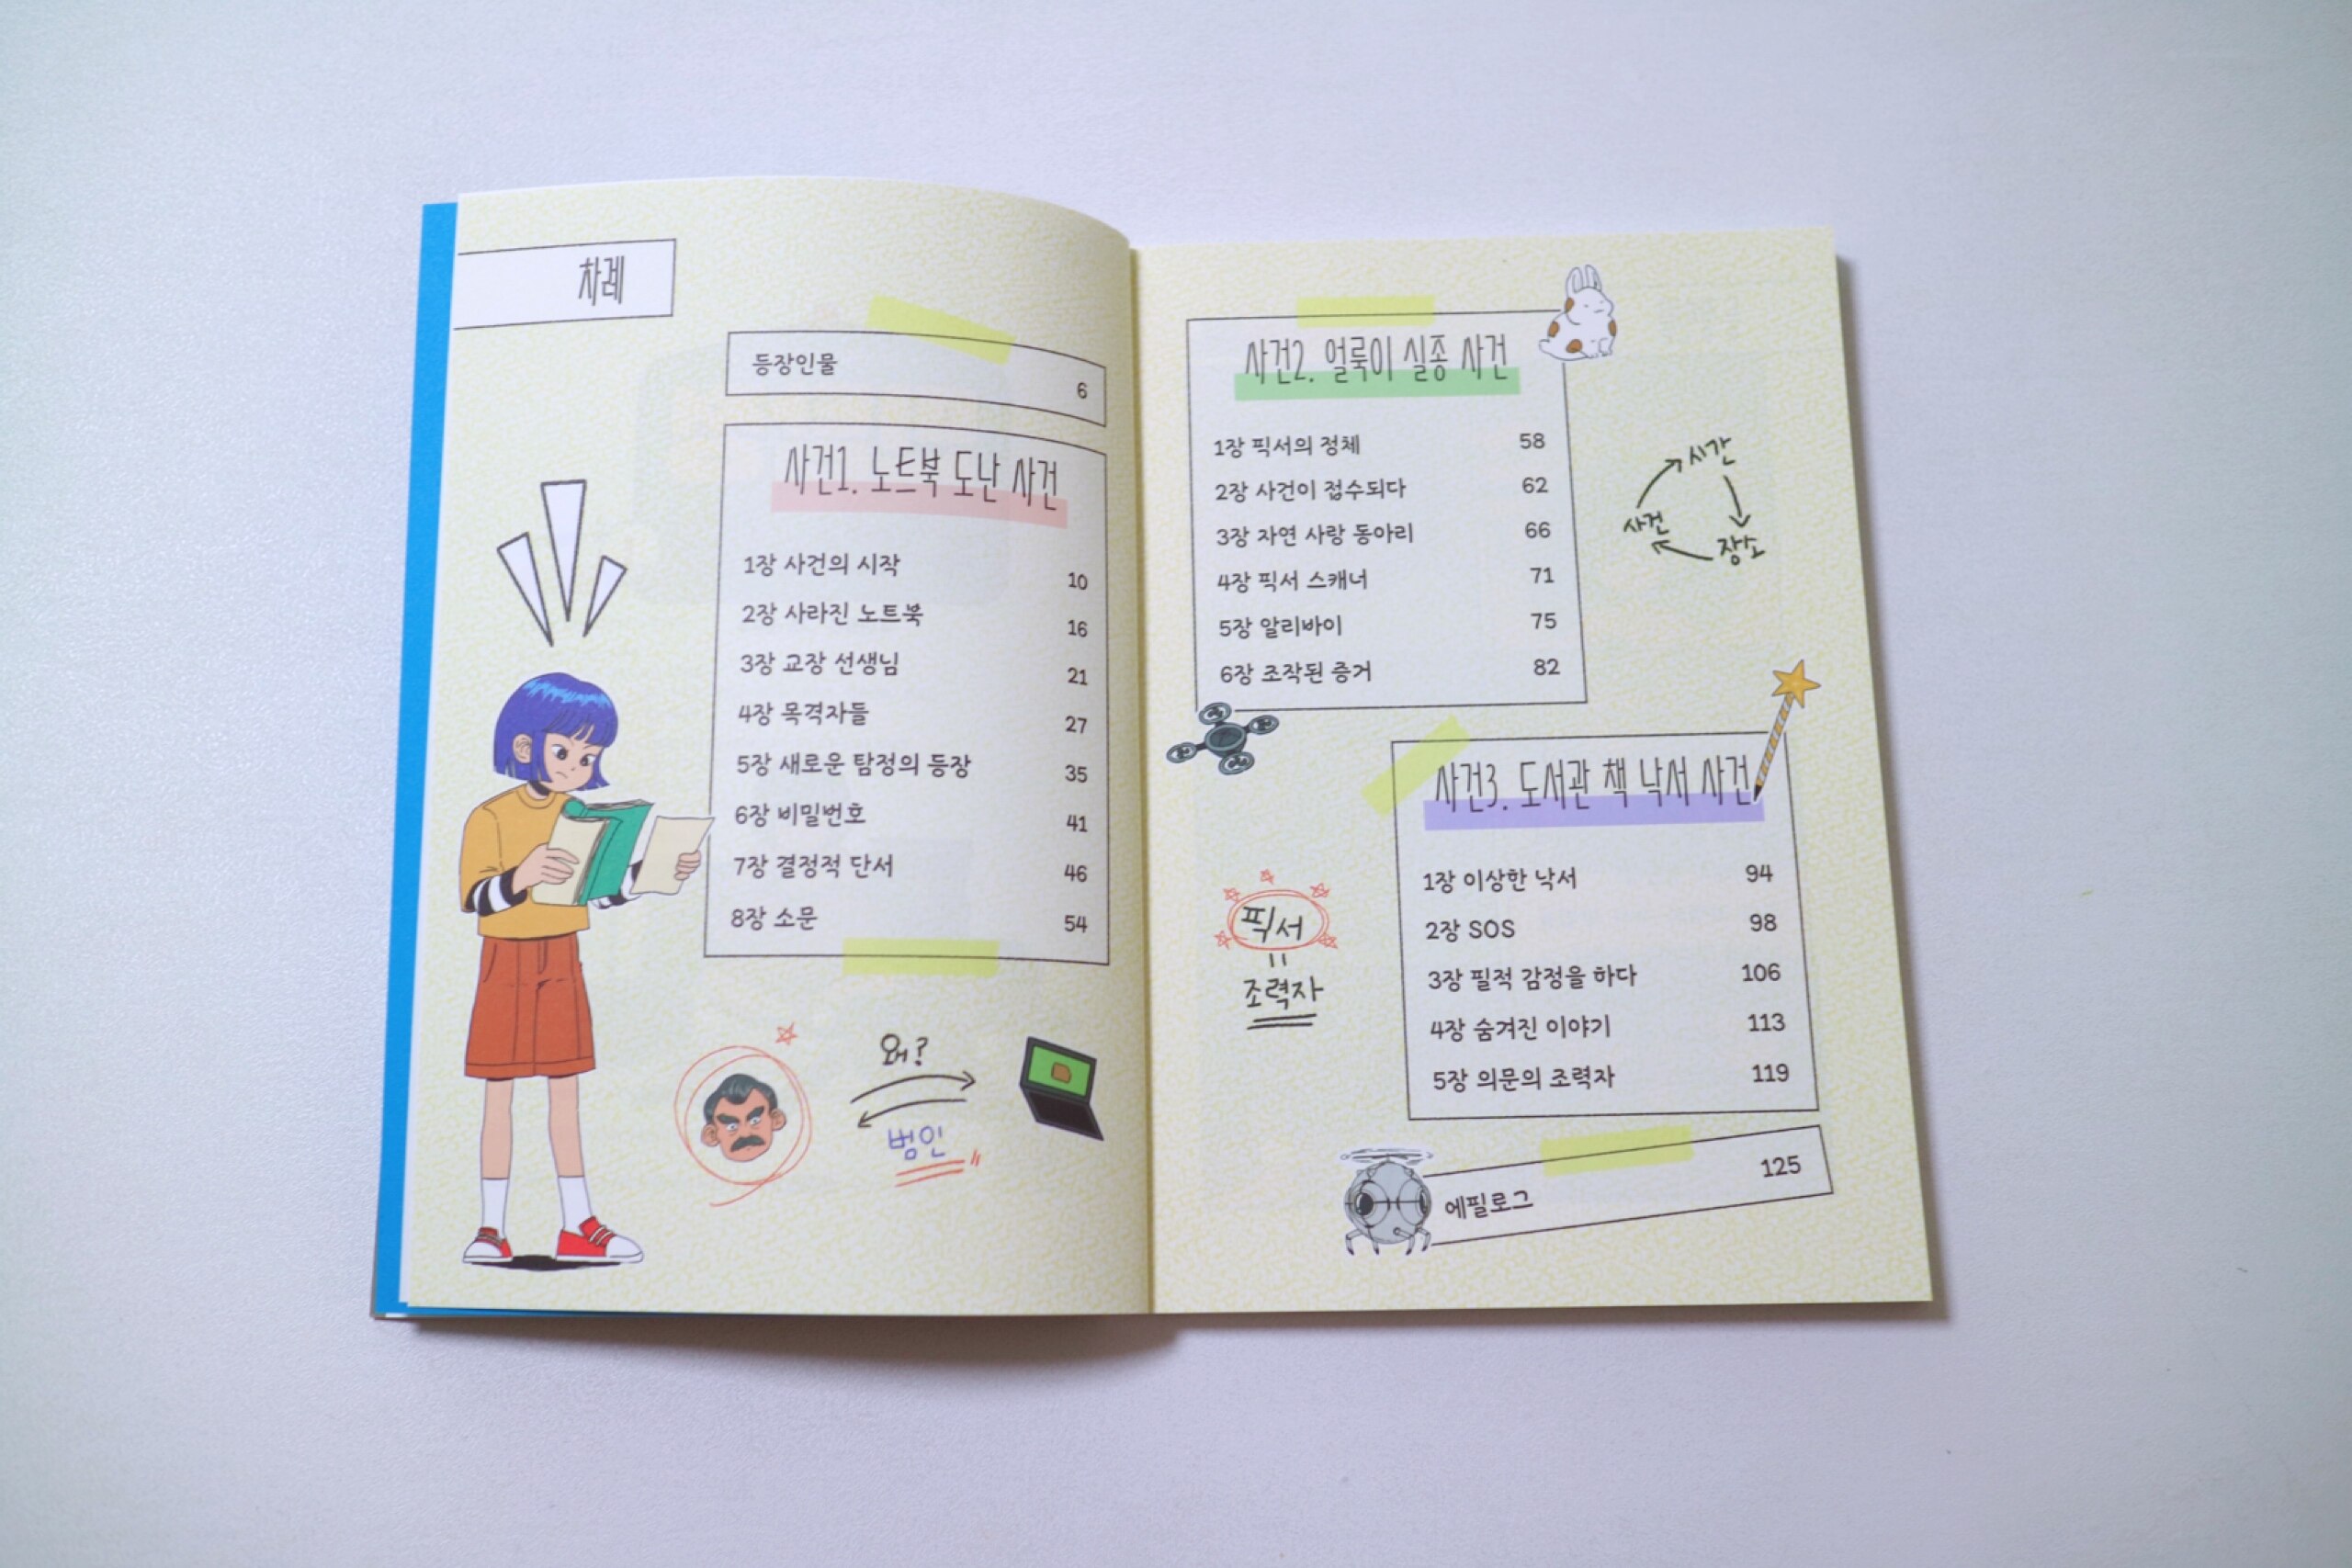 차례
등장인물 6
사건1. 노트북 도난 사건
1장 사건의 시작 10
2장 사라진 노트북 16
3장 교장 선생님 21
4장 목격자들 27
5장 새로운 탐정의 등장 35
6장 비밀번호 41
7장 결정적 단서 46
8장 소문 54
왜?
범인
사건2. 얼룩이 실종 사건
1장 픽서의 정체 58
2장 사건이 접수되다 62
3장 자연 사랑 동아리 66
4장 픽서 스캐너 71
5장 알리바이 75
6장 조작된 증거 82
시간
사건
장소
사건3. 도서관 책 낙서 사건
1장 이상한 낙서 94
2장 SOS 98
3장 필적 감정을 하다 106
4장 숨겨진 이야기 113
5장 의문의 조력자 119
픽서
=
조력자
에필로그 125